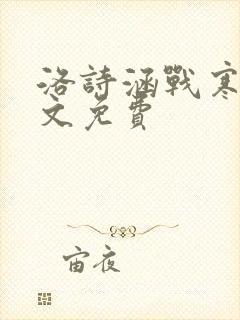 洛詩涵戰寒
文免費
宙夜